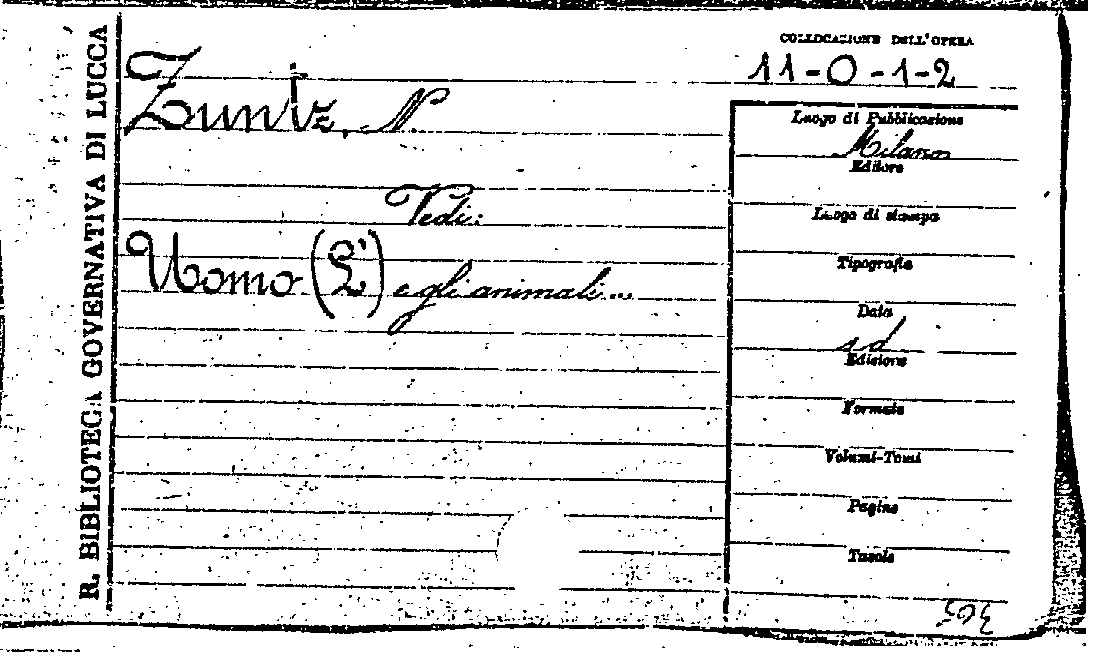 R. BIBLIOTECA GOVERNATIVA DI LUCCA
COLLOCAZIONE DELL'OPERA
11-0-1-2
Zuntz, N.
Vedi:
Uomo (L') e gli animali...
Luogo di Pubblicazione
Milano
Editore
Luogo di stampa
Tipografia
Data
s d
Edizione
Formato
Volumi-Tomi
Pagine
Tavole